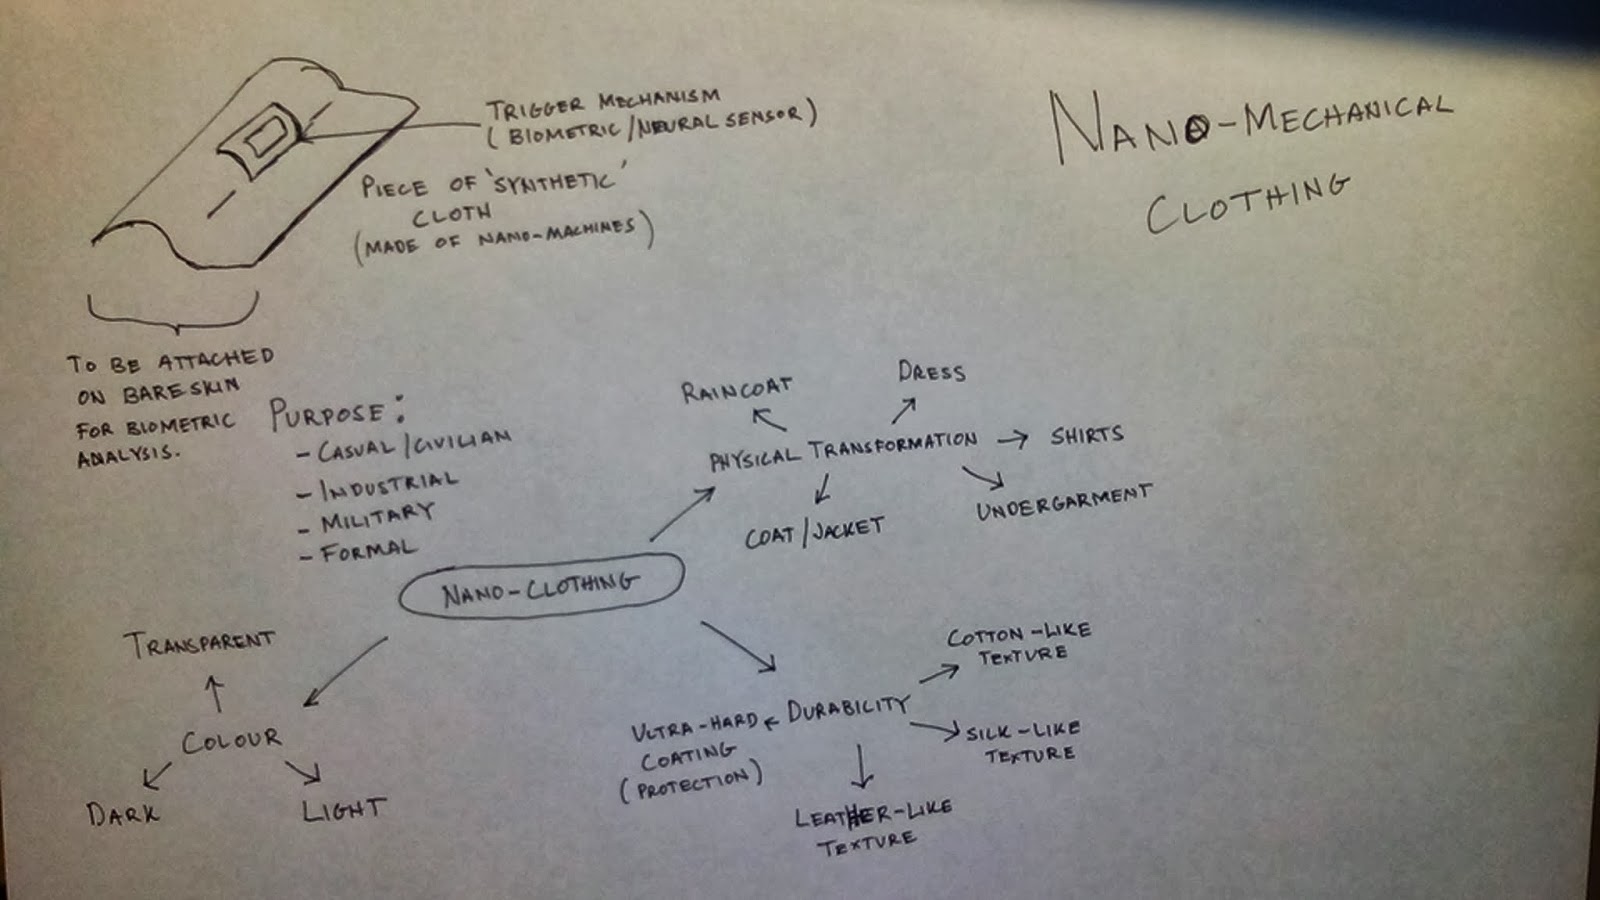 NANO-MECHANICAL
CLOTHING
TRIGGER MECHANISM
(BIOMETRIC/NEURAL SENSOR)
PIECE OF 'SYNTHETIC'
CLOTH
(MADE OF NANO-MACHINES)
TO BE ATTACHED
ON BARE SKIN
FOR BIOMETRIC
ANALYSIS.
PURPOSE:
- CASUAL/CIVILIAN
- INDUSTRIAL
- MILITARY
- FORMAL
NANO-CLOTHING
PHYSICAL TRANSFORMATION
RAINCOAT
DRESS
SHIRTS
UNDERGARMENT
COAT/JACKET
COLOUR
TRANSPARENT
DARK
LIGHT
DURABILITY
COTTON-LIKE
TEXTURE
SILK-LIKE
TEXTURE
LEATHER-LIKE
TEXTURE
ULTRA-HARD
COATING
(PROTECTION)